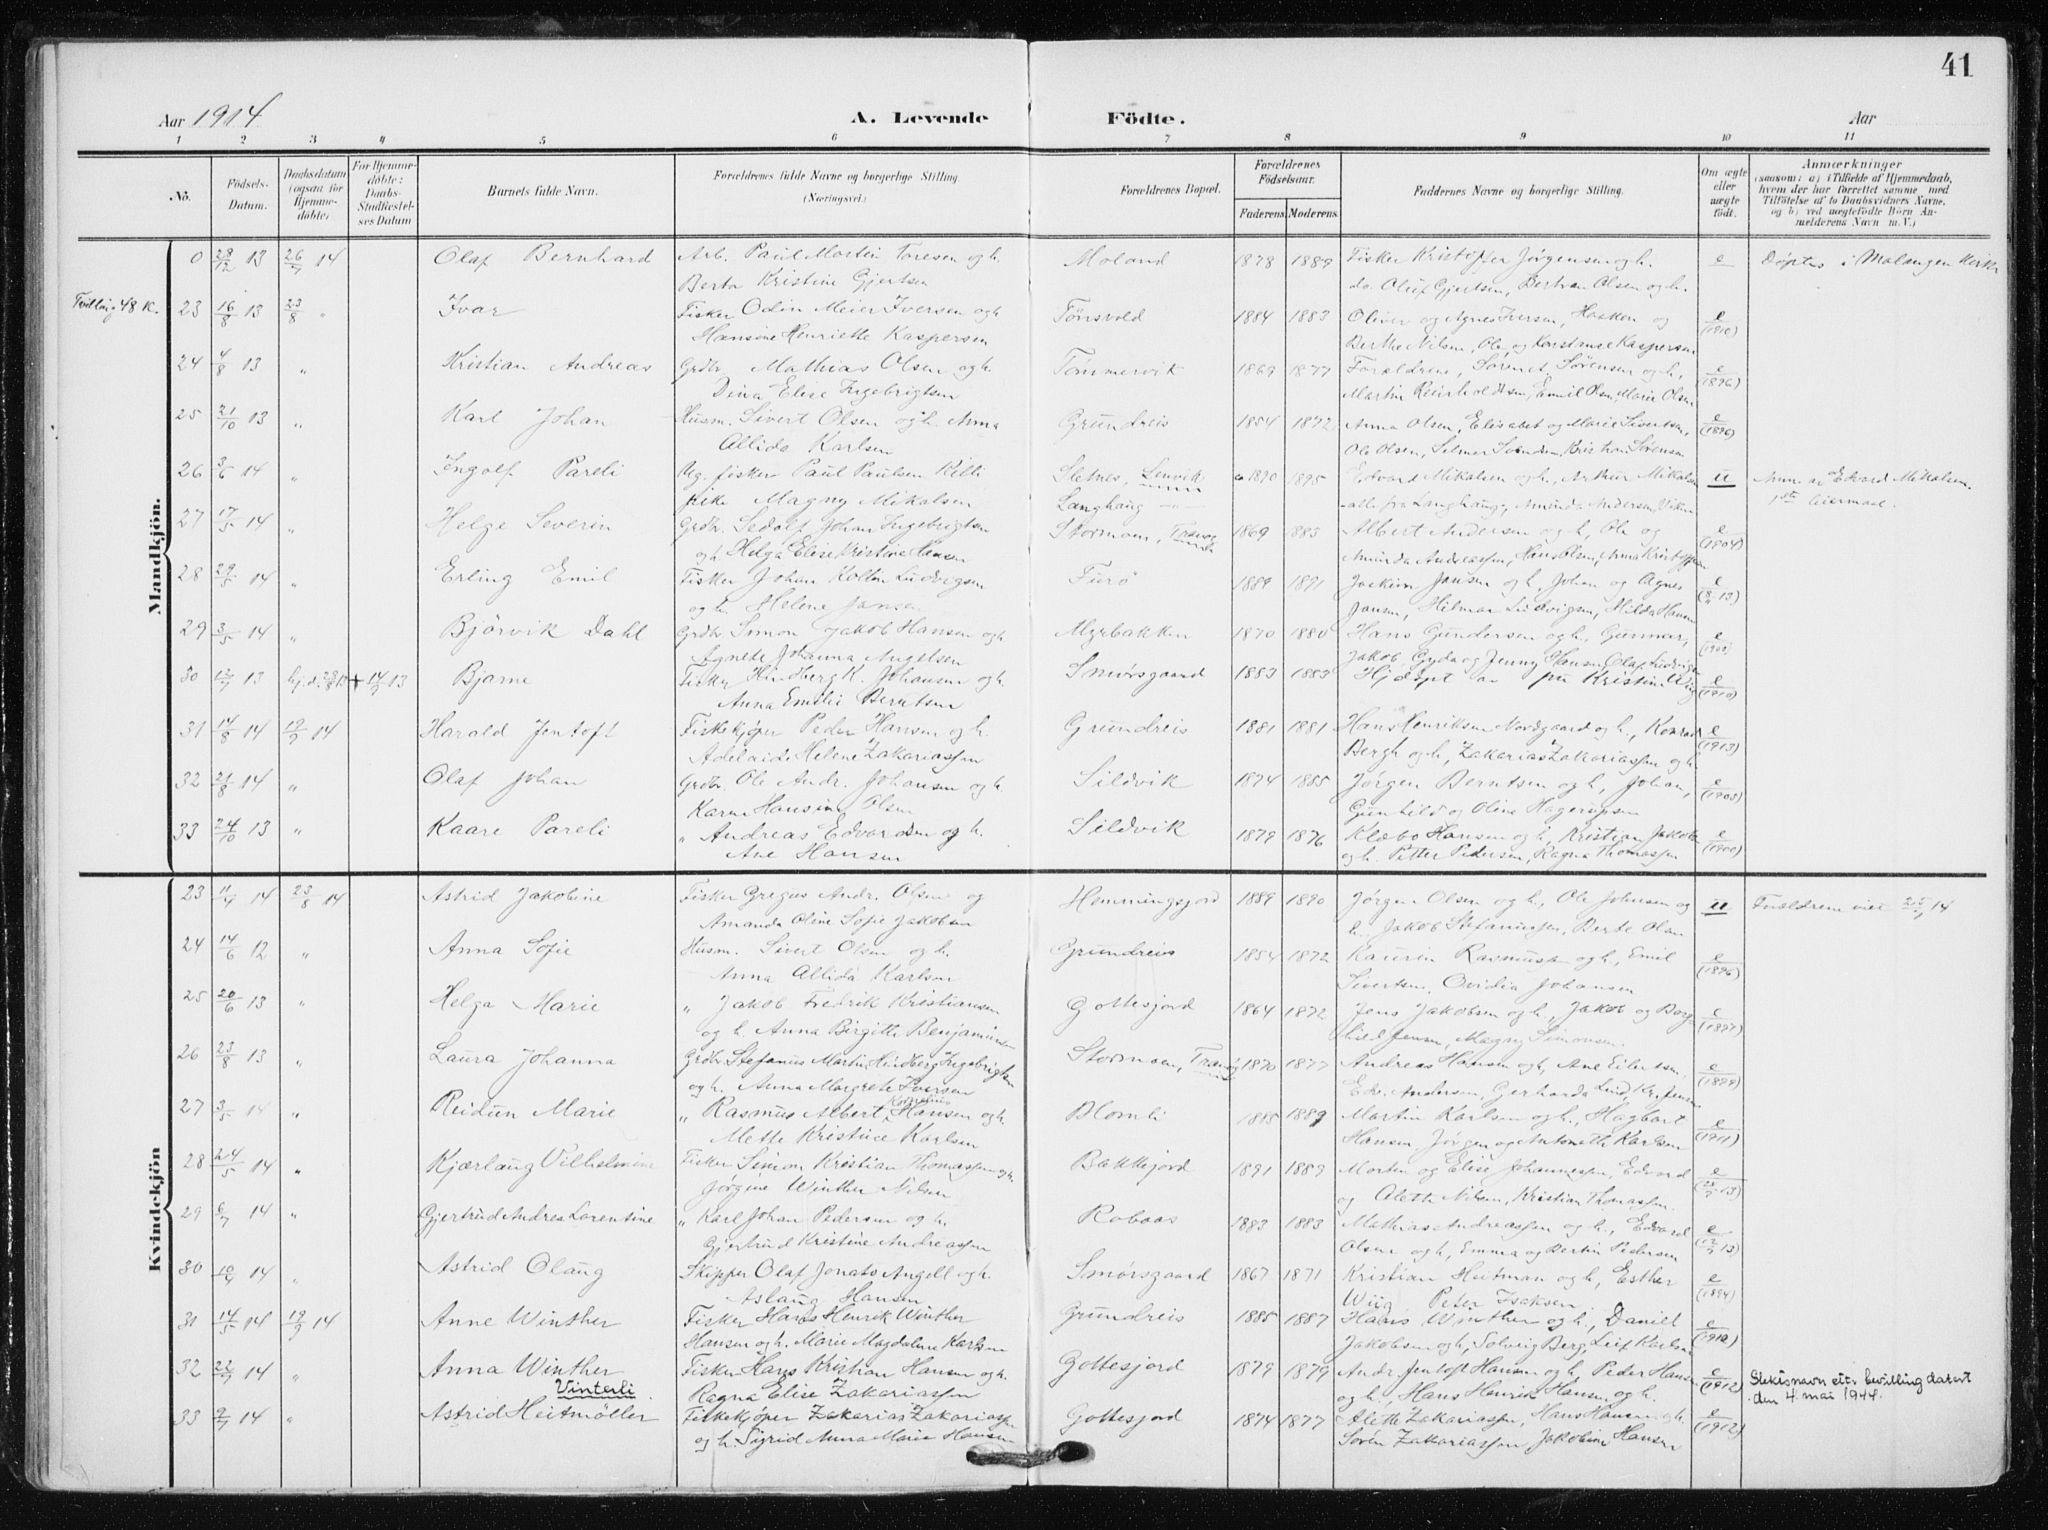 41
Aar 1914 A. Levende Födte. Aar
1 2 3 4 5 6 7 8 9 10 11
No. Födsels-Datum. Daabsdatum (ogsaa for Hjemmedöbte) For Hjemmedöbte: Daabs-Stadfestelses Datum Barnets fulde Navn. Forældrenes fulde Navne og borgerlige Stilling. (Næringsvei.) Forældrenes Bopæl. Forældrenes Födselsaar. Faderens. Moderens. Faddernes Navne og borgerlige Stilling. Om ægte eller uægte födt. Anmærkninger (saasom: a) i Tilfælde af Hjemmedaab, hvem der har forrettet samme med Tilföielse af to Daabsvidners Navne, og b) ved uægtefödte Börn Anmelderens Navn m.V.)
Mandkjön.
0 28/12 13 26/7 14 Olaf Bernhard Arb. Paul Martin Toresen og h. Moland 1878 1889 Fisker Kristoffer Jørgensen og h. e Døptes i Malangen Kirke
Berta Kristine Gjertsen do. Oluf Gjertsen, Bertran Olsen og h.
Tvilling 48 K. 23 16/8 13 23/8 " Ivar Fisker Odin Meier Iversen og h Tønsvold 1884 1883 Oliver og Agnes Iversen, Haaken og e
Hansine Henriette Kaspersen Berthe Nilsen, Ole og Konstanse Kaspersen (1910)
24 4/8 13 " Kristian Andreas Grdbr. Mathias Olsen og h. Tømmervik 1869 1877 Forældrene, Søren Sørensen og h., e
Dina Elise Ingebrigtsen Martin Reinholdtsen, Emil Olsen, Marie Olsen (1896)
25 21/10 13 " Karl Johan Husm. Sivert Olsen og h. Anna Grundreis 1854 1872 Anna Olsen, Elisabet og Marie Sivertsen, e
Allida Karlsen Ole Olsen, Selmer Svendsen, Kristian Sørensen (1896)
26 3/6 14 " Ingolf Pareli Ug. fisker Paul Paulsen Killi Sletnes, Lenvik 1890 1895 Edvard Mikalsen og h., Arthur Mikalsen u Anm. av Edvard Mikalsen.
pike Magny Mikalsen Langhaug alle fra Langhaug, Amund Andersen, 1ste leiermaal.
27 17/5 14 " Helge Severin Grdbr. Sedolf Johan Ingebrigtsen Stormoen, Tranøy 1869 1883 Albert Andersen og h, Ole og e
og h. Helga Elise Kristine Hansen Aminda Andreassen, Hans Olsen, Anna Kristoffersen (1904)
28 29/5 14 " Erling Emil Fisker Johan Koltin Ludvigsen Furø 1889 1891 Joakim Jansen og h, Johan og Agnes e
og h. Helene Jansen Jansen, Hilmar Ludvigsen, Hilda Hansen
29 3/5 14 " Bjørvik Dahl Grdbr. Simon Jakob Hansen og h. Myrbakken 1870 1880 Hans Gundersen og h., Gunnar, e
Agnete Johanna Angelsen Jakob, Gyda og Jenny Hansen, Olaf Ludvigsen (1900)
30 12/7 13 hj.d. + 14/9 13 Bjarne Fisker Hindberg K. Johansen og h. Smørsgaard 1883 1883 Hjdøpt av frk Kristine Wiig e
Anna Emilie Berntsen (1910)
31 14/8 14 19/9 14 Harald Jentoft Fiskekjøper Peder Hansen og h. Grundreis 1881 1881 Hans Henriksen Nordgaard og h., Konrad e
Adelaide Helene Zakariassen Bergh og h, Zakarias Zakariassen og h (1913)
32 21/8 14 " Olaf Johan Grdbr. Ole Andr. Johansen og h. Sildvik 1874 1885 Jørgen Berntsen og h, Johan, e
Karen Hansine Olsen Gunhild og Oline Hagerupsen (1905)
33 24/10 13 " Kaare Pareli " Andreas Edvardsen og h. Sildvik 1879 1876 Klæbo Hansen og h., Kristian Jakobsen e
Ane Hansen og h. Petter Pedersen, Ragna Thomassen (1900)
Kvindekjön
23 11/4 14 23/8 14 Astrid Jakobine Fisker Gregus Andr. Olsen og Hemmingsjord 1889 1890 Jørgen Olsen og h., Ole Johnsen og u Forældrene viet 14
Amanda Oline Sofie Jakobsen h., Jakob Stefanussen, Berte Olsen
24 14/6 12 " Anna Sofie Husm. Sivert Olsen og h. Grundreis 1854 1872 Kaurin Rasmussen og h, Emil e
Anna Allida Karlsen Sivertsen, Ovidia Johansen (1896)
25 20/6 13 " Helga Marie " Jakob Fredrik Kristiansen Gottesjord 1864 1872 Jens Jakobsen og h., Jakob og Berg- e
og h. Anna Birgithe Benjaminsen lised Jensen, Magny Simonsen.
26 23/8 13 " Laura Johanna Grdbr Stefanus Martin Hindberg Ingebrigtsen Stormoen, Tranøy 1870 1877 Andreas Hansen og h, Ane Eilertsen, e
og h. Anna Margrete Iversen Edv. Andersen, Gerharda Lind, Kr. Jensen (1899)
27 3/5 14 " Reidun Marie " Rasmus Albert Kornelius Hansen og h. Blomli 1885 1889 Martin Karlsen og h., Hagbart e
Mette Kristine Karlsen Hansen, Jørgen og Antonette Karlsen (1911)
28 24/5 14 " Kjærlaug Vilhelmine Fisker Simon Kristian Thomassen og h. Bakkejord 1891 1889 Morten og Elise Johannessen, Edvard e
Jørgine Winther Nilsen og Alette Nilsen, Kristian Thomassen
29 6/7 14 " Gjertrud Andrea Lorentine " Karl Johan Pedersen og h. Robaas 1883 1883 Mathias Andreassen og h., Edvard e
Gjertrud Kristine Andreassen Olsen og h, Emma og Bertin Pedersen
30 10/7 14 " Astrid Olaug Skipper Olaf Jonats Angell og h. Smørsgaard 1867 1871 Kristian Heitman og h, Esther e
Aslaug Hansen Wiig, Peter Isaksen (1894)
31 14/5 14 19/9 14 Anne Winther Fisker Hans Henrik Winther Grundreis 1885 1887 Hans Winther og h., Daniel e
Hansen og h. Marie Magdalena Karlsen Jakobsen og h, Solveig Berg, Leif Karlsen
32 22/7 14 " Anna Winther Fisker Hans Kristian Hansen og h. Gottesjord 1879 1879 Andr. Jentoft Hansen og h, Peder Hansen e
Vinterli Ragna Elise Zakariassen og h., Hans Henrik Hansen og h. (1912) Slektsnavn eft. bevilling datert den 4. mai 1944.
33 9/7 14 " Astrid Heitmöller Fiskekjøper Zakarias Zakariassen Gottesjord 1874 1877 Alette Zakariassen, Hans Hansen og h. e
og h. Sigrid Anna Marie Hansen Søren Zakariassen, Jakobine Hansen (1912)